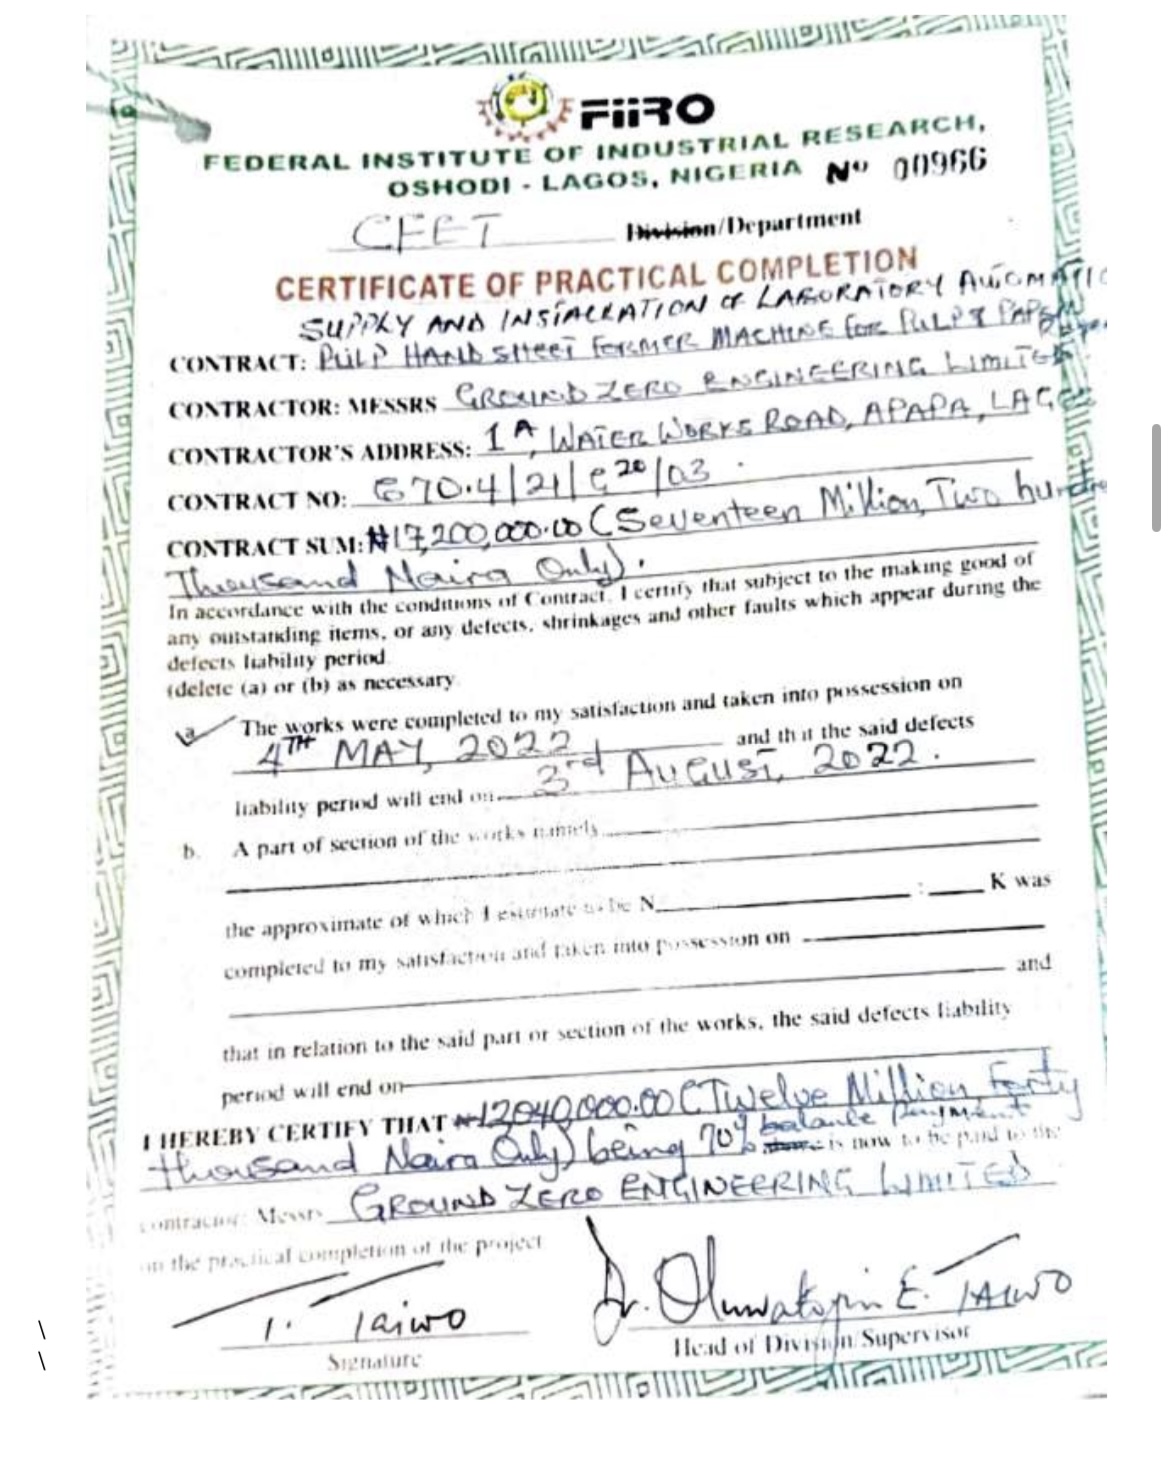 FIIRO
FEDERAL INSTITUTE OF INDUSTRIAL RESEARCH,
OSHODI - LAGOS, NIGERIA Nº 00966
CFET Division/Department
CERTIFICATE OF PRACTICAL COMPLETION
SUPPLY AND INSTALLATION OF LABORATORY AUTOMATIC
CONTRACT: PULP HAND SHEET FORMER MACHINE FOR PULP & PAPER
CONTRACTOR: MESSRS GROUND ZERO ENGINEERING LIMITED
CONTRACTOR'S ADDRESS: 1A, WATER WORKS ROAD, APAPA, LAGOS
CONTRACT NO: 670.4/21/ 20/03.
CONTRACT SUM: ₦17,200,000.00 (Seventeen Million, Two hundred
Thousand Naira Only).
In accordance with the conditions of Contract. I certify that subject to the making good of
any outstanding items, or any defects, shrinkages and other faults which appear during the
defects liability period.
(delete (a) or (b) as necessary
a The works were completed to my satisfaction and taken into possession on
4TH MAY, 2022 and that the said defects
liability period will end on 3rd August, 2022.
b. A part of section of the works namely
the approximate of which I estimate to be N : K was
completed to my satisfaction and taken into possession on
and
that in relation to the said part or section of the works, the said defects liability
period will end on
I HEREBY CERTIFY THAT ₦12040,000.00 (Twelve Million, Forty
thousand Naira Only) being 70% balance payment is now to be paid to the
contractor: Messrs GROUND ZERO ENGINEERING LIMITED
on the practical completion of the project
T. Taiwo Dr. Oluwatoyin E. TAIWO
Signature Head of Division/Supervisor
\
\